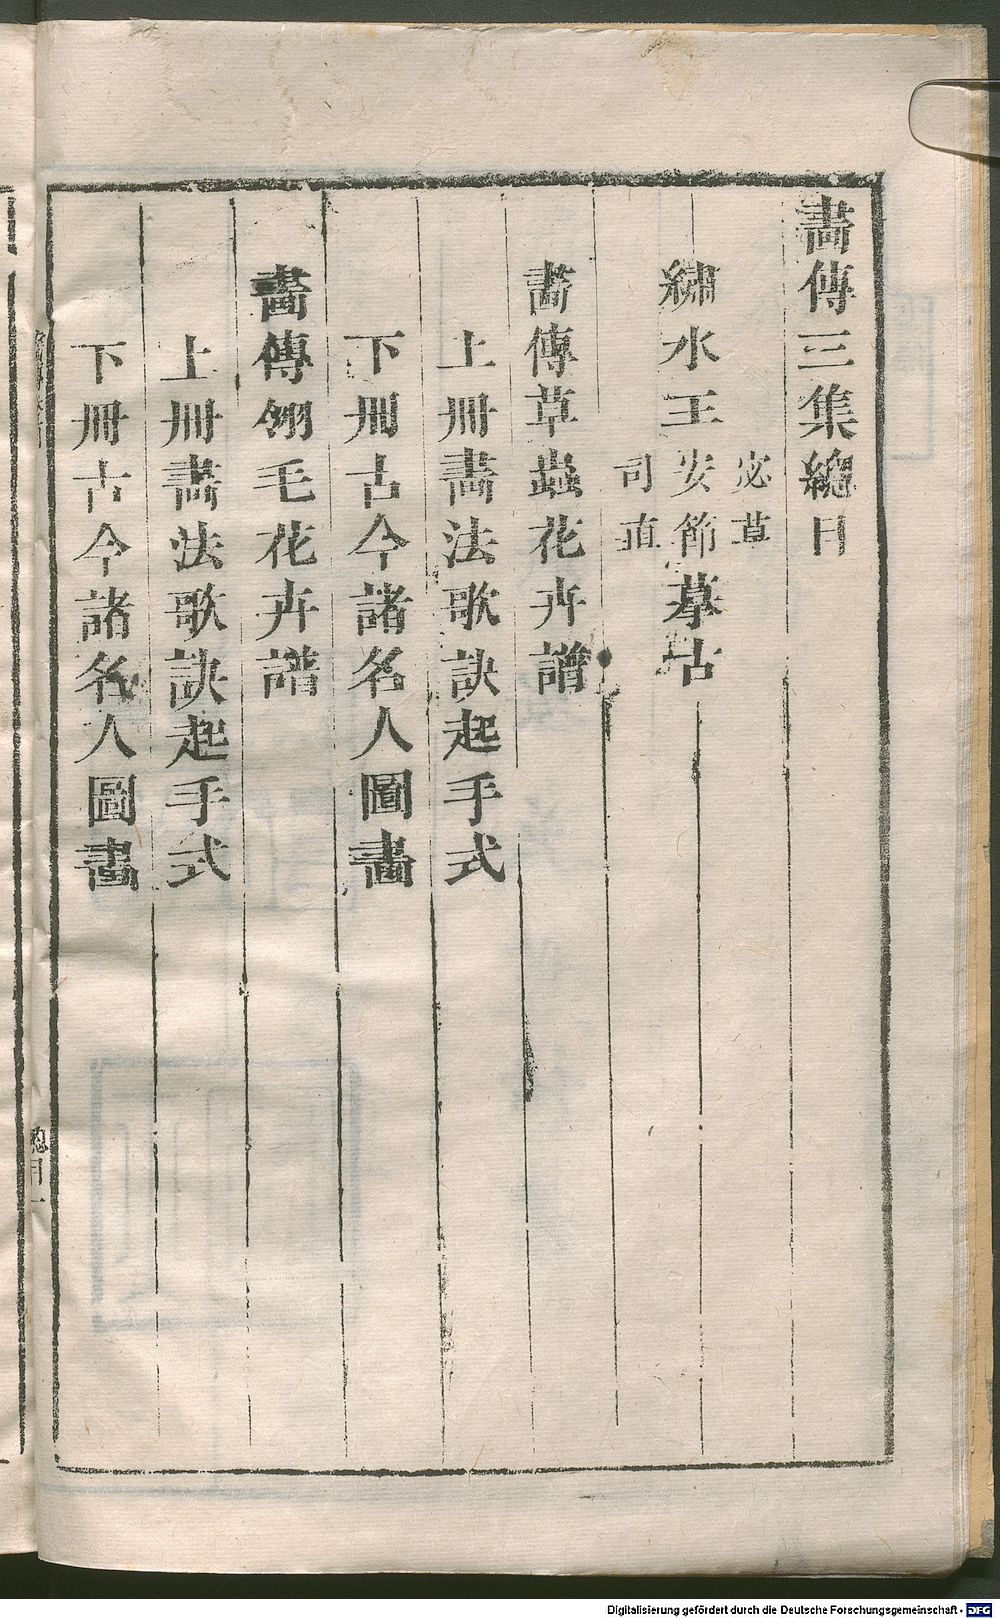 畫傳三集總目
宓草
繡水王安節摹古
司直
畫傳草蟲花卉譜
上冊畫法歌訣起手式
下冊古今諸名人圖畫
畫傳翎毛花卉譜
上冊畫法歌訣起手式
下冊古今諸名人圖畫
總目一
Digitalisierung gefördert durch die Deutsche Forschungsgemeinschaft - DFG